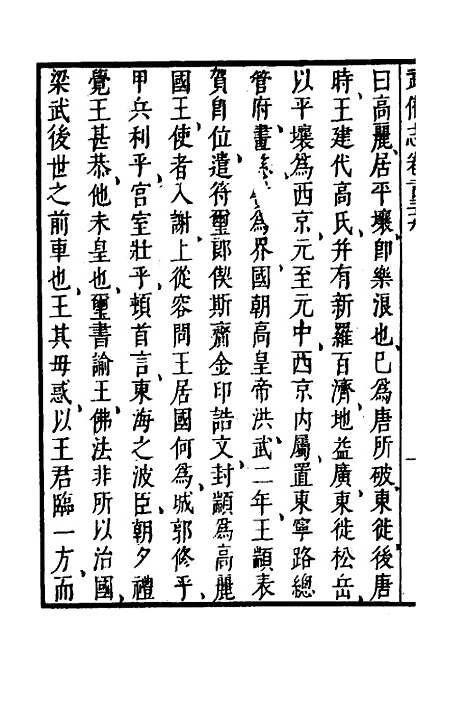 武備志卷二百三十九
曰高麗居平壤卽樂浪也已爲唐所破東徙後唐
時王建代高氏并有新羅百濟地益廣東徙松岳
以平壤爲西京元至元中西京內屬置東寧路總
管府畫爲界國朝高皇帝洪武二年王顓表
賀卽位遣符璽郎偰斯齎金印誥文封顓爲高麗
國王使者入謝上從容問王居國何爲城郭修乎
甲兵利乎宮室壯乎頓首言東海之波臣朝夕禮
覺王甚恭他未皇也璽書諭王佛法非所以治國
梁武後世之前車也王其毋惑以王君臨一方而